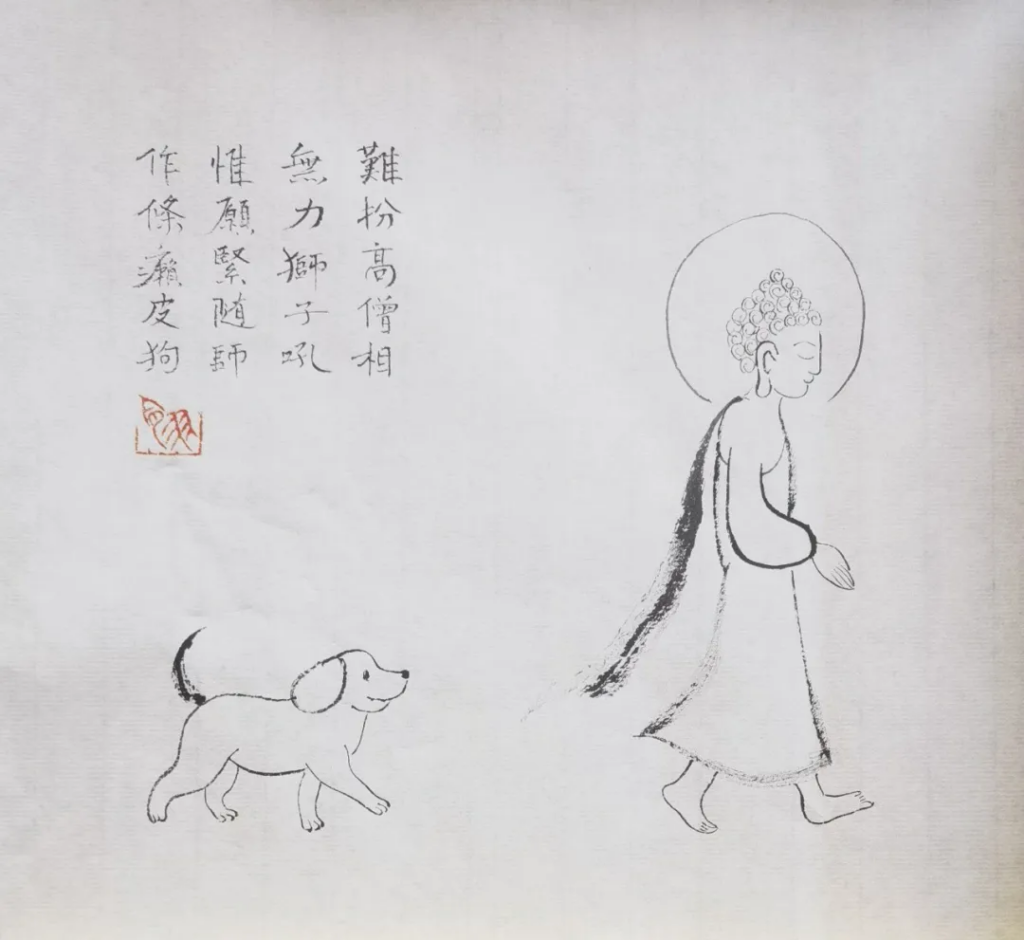 難扮高僧相
無力獅子吼
惟願緊随師
作條癩皮狗